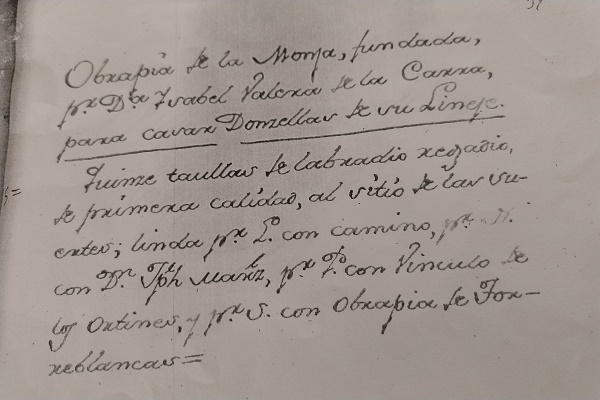 Obrapia de la Monja, fundada,
pr. Dª Ysabel Valera de la Carra,
para casar Donzellas de su Lineje.
Quinze taullas de labradio regadio,
de primera calidad, al sitio de las Su-
ertes; linda pr. L. con camino, pr. N.
con Dn. Jph Marñz, pr. P. con Vinculo de
los Ortines, y pr. S. con Obrapia de Tor-
reblancas=